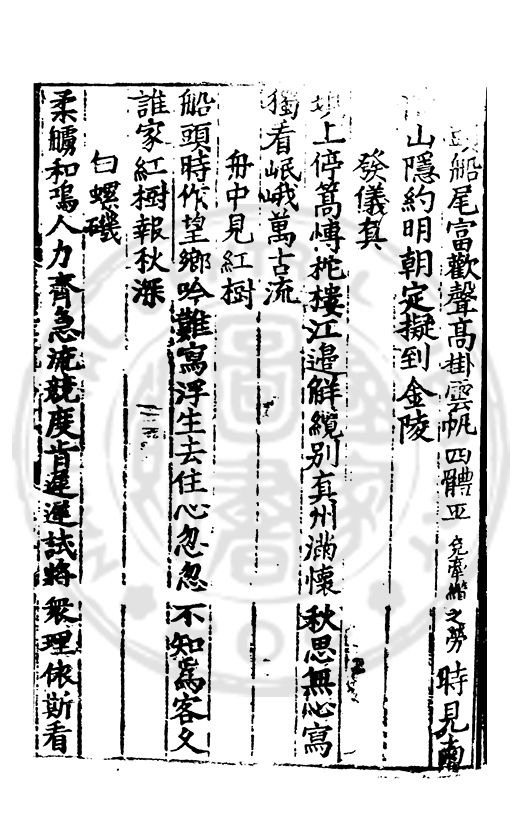 船尾富歡聲高掛雲帆四體平免牽纜之勞時見南
山隱約明朝定擬到金陵
發儀真
上停篙柁樓江邊解纜別真州滿懷秋思無心寫
獨看岷峨萬古流
舟中見紅樹
船頭時作望鄉吟難寫浮生去住心忽忽不知爲客久
誰家紅樹報秋深
白螺磯
柔艣和鳴人力齊急流競度肯遲遲試將衆理依斯看